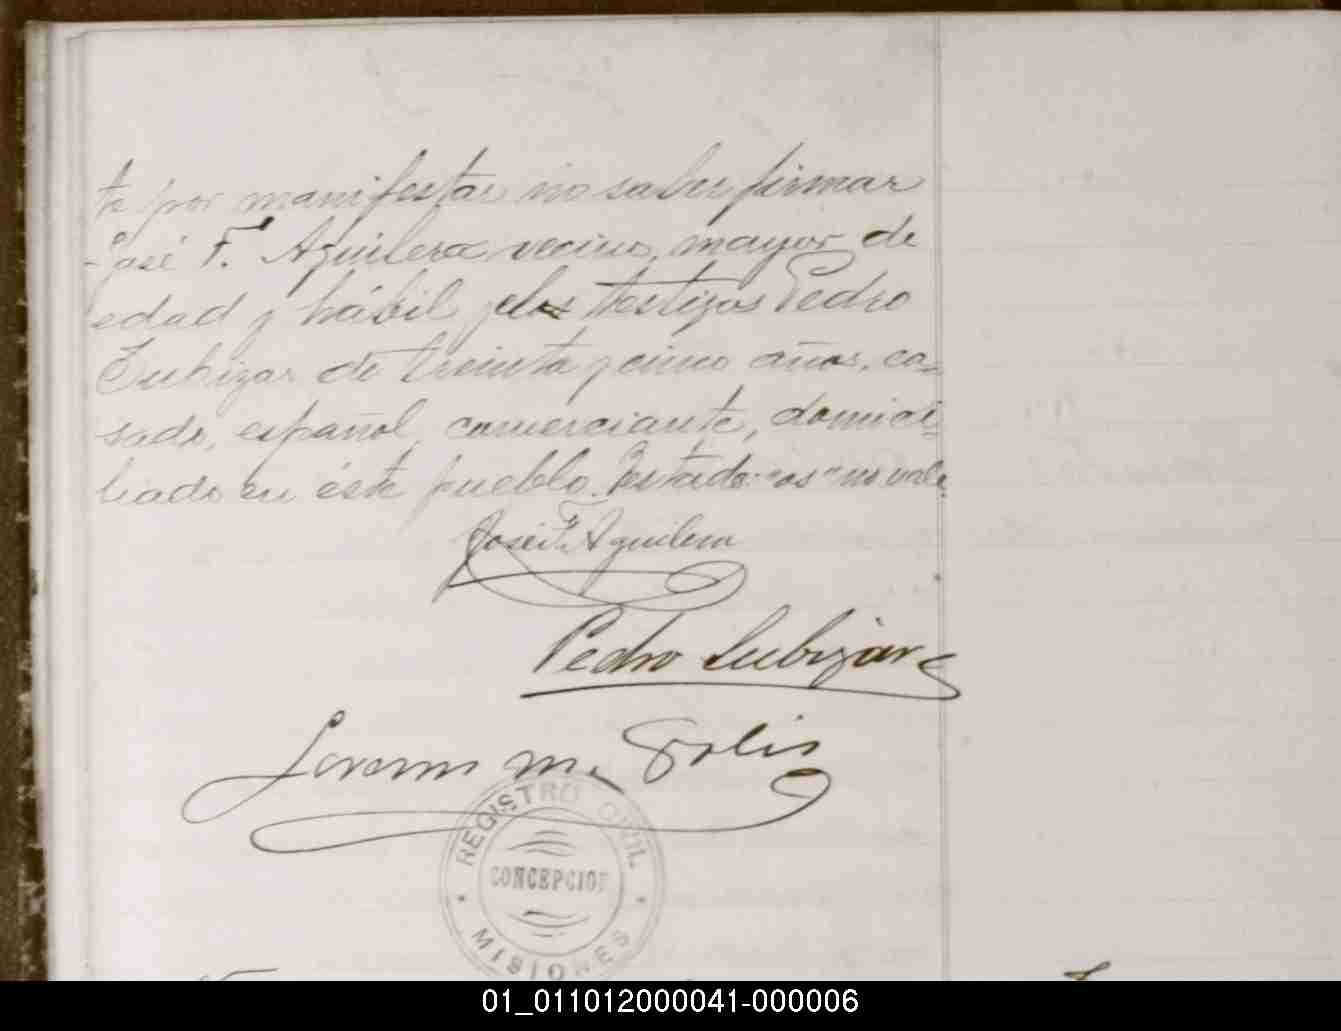 te por manifestar no saber firmar
José F. Aguilera vecino, mayor de
edad y hábil y los testigos Pedro
Lubizar de treinta y cinco años, ca-
sado, español, comerciante, domici-
liado en éste pueblo. Testado: "os" no vale.
José F. Aguilera
Pedro Lubizar
Lorenzo M. Solis
REGISTRO CIVIL
CONCEPCION
MISIONES
01_011012000041-000006